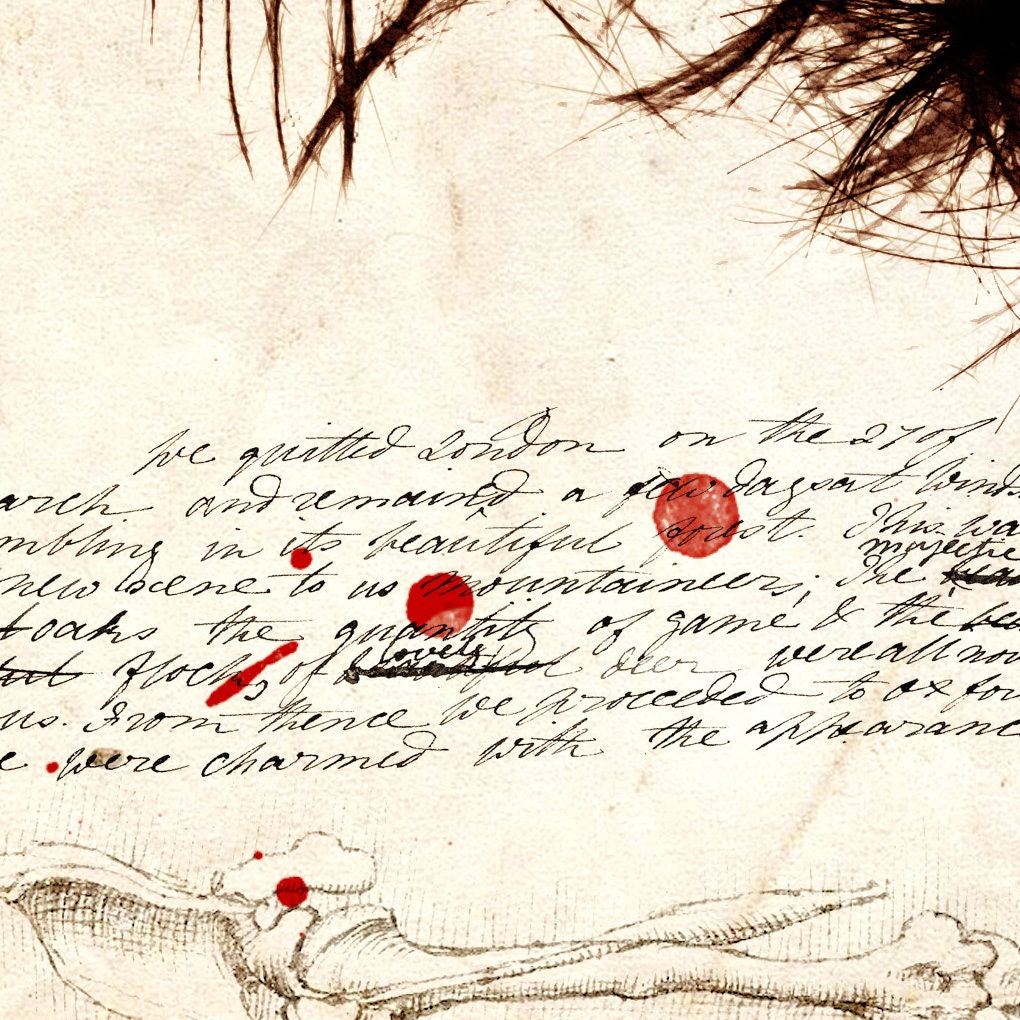 we quitted London on the 27 of
arch and remained a few days at Winds
mbling in its beautiful forest. This wa
majestic
new scene to us mountaineers; The
t oaks the quantity of game & the
lovely
flocks of deer were all nov
us. From thence we proceeded to Oxfor
e were charmed with the appearanc